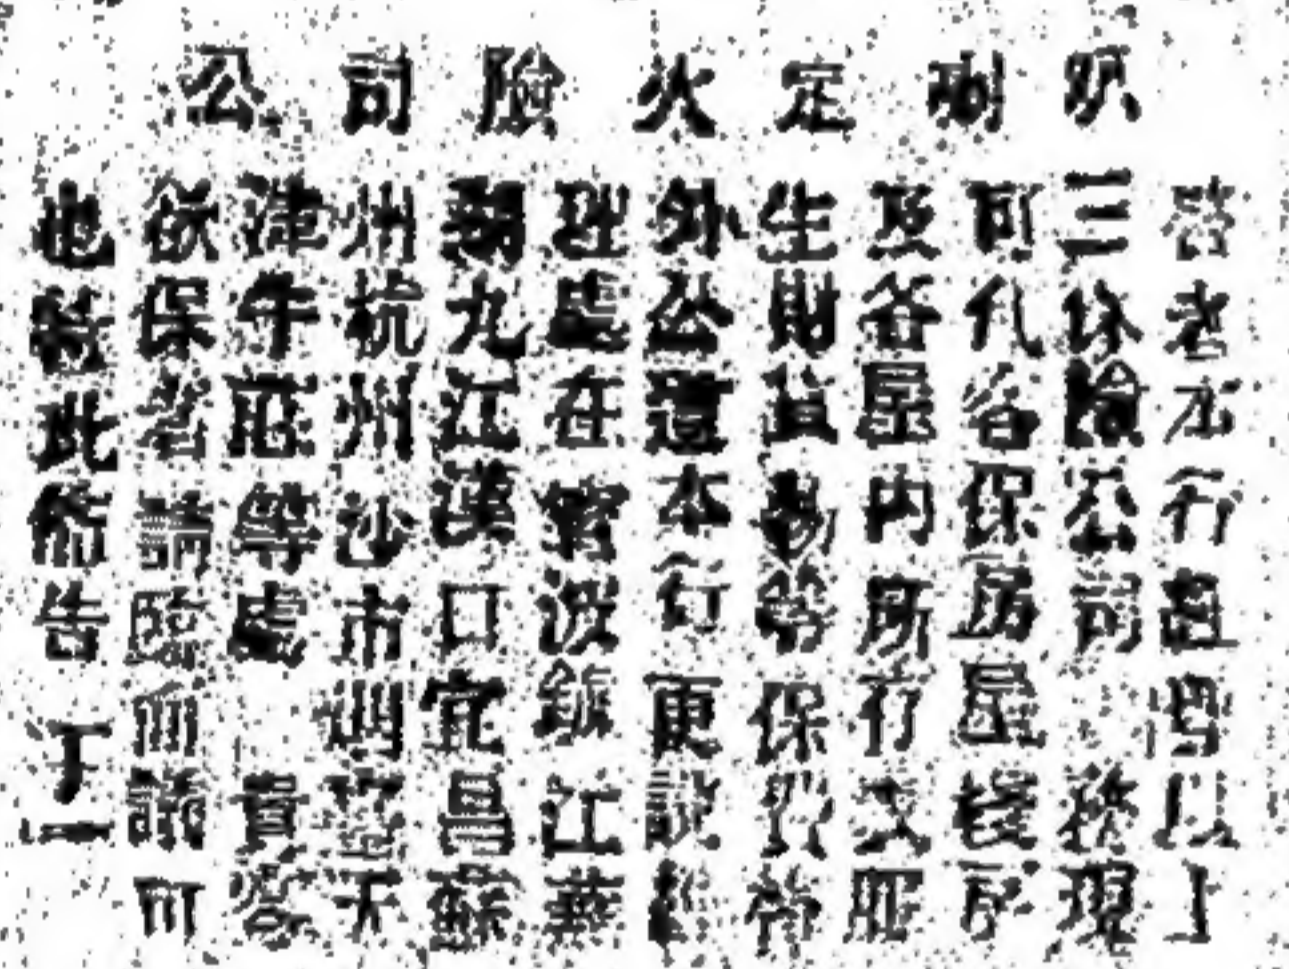 叭喇定火險司公
啓者本行經理以上
三保險公司務現
可代各保房屋棧房
及各屋內所有衣服
生財貨物等保費格
外公道本行更設經
理處在寧波鎮江蕪
湖九江漢口宜昌蘇
州杭州沙市天
津牛莊等處貴客
欲保者請臨面議可
也特此佈告